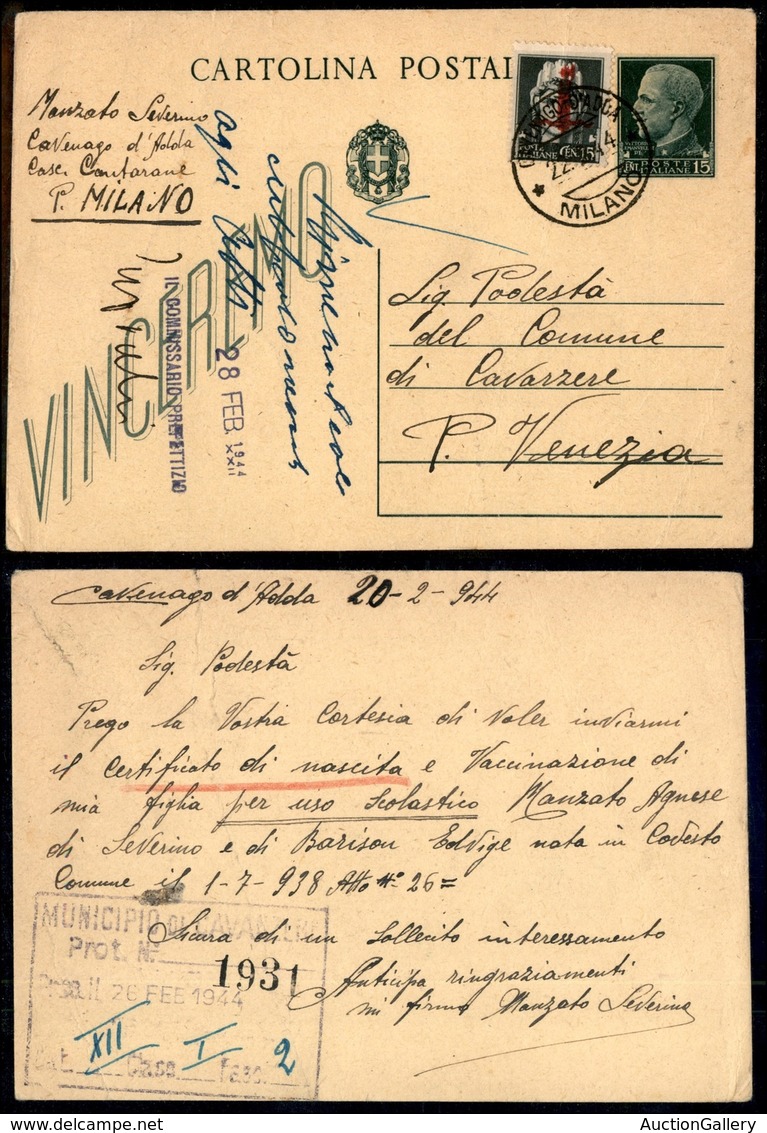 CARTOLINA POSTAL
Manzato Severino
Cavenago d'Adda
Casc. Contarane
P. MILANO
POSTE ITALIANE CEN. 15
VITTORIO
EMANUELE
CENT POSTE ITALIANE 15
MILANO
VINCEREMO
agli Atti
28 FEB. 1944
XXII
IL COMMISSARIO PREFETTIZIO
Sig. Podestà
del Comune
di Cavarzere
P. Venezia
Cavenago d'Adda 20-2-944
Sig. Podestà
Prego la Vostra Cortesia di voler inviarmi
il certificato di nascita e Vaccinazione di
mia figlia per uso scolastico Manzato Agnese
di Severino e di Barison Edvige nata in Codesto
Comune il 1-7-938 Atto N° 26=
Sicura di un sollecito interessamento
Anticipa ringraziamenti
mi firmo Manzato Severino
MUNICIPIO di CAVARZERE
Prot. N.
1931
26 FEB 1944
XII I 2
Cat. Class. Fasc.
AuctionGallery